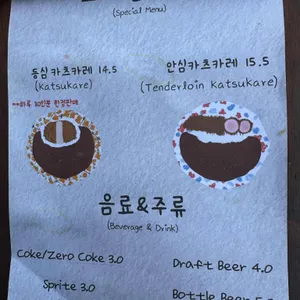 (Special Menu)
등심 카츠카레 14.5
(Katsukare)
**하루 10인분 한정판매
안심카츠카레 15.5
(Tenderloin Katsukare)
음료&주류
(Beverage & Drink)
Coke/Zero Coke 3.0
Draft Beer 4.0
Sprite 3.0
Bottle Beer